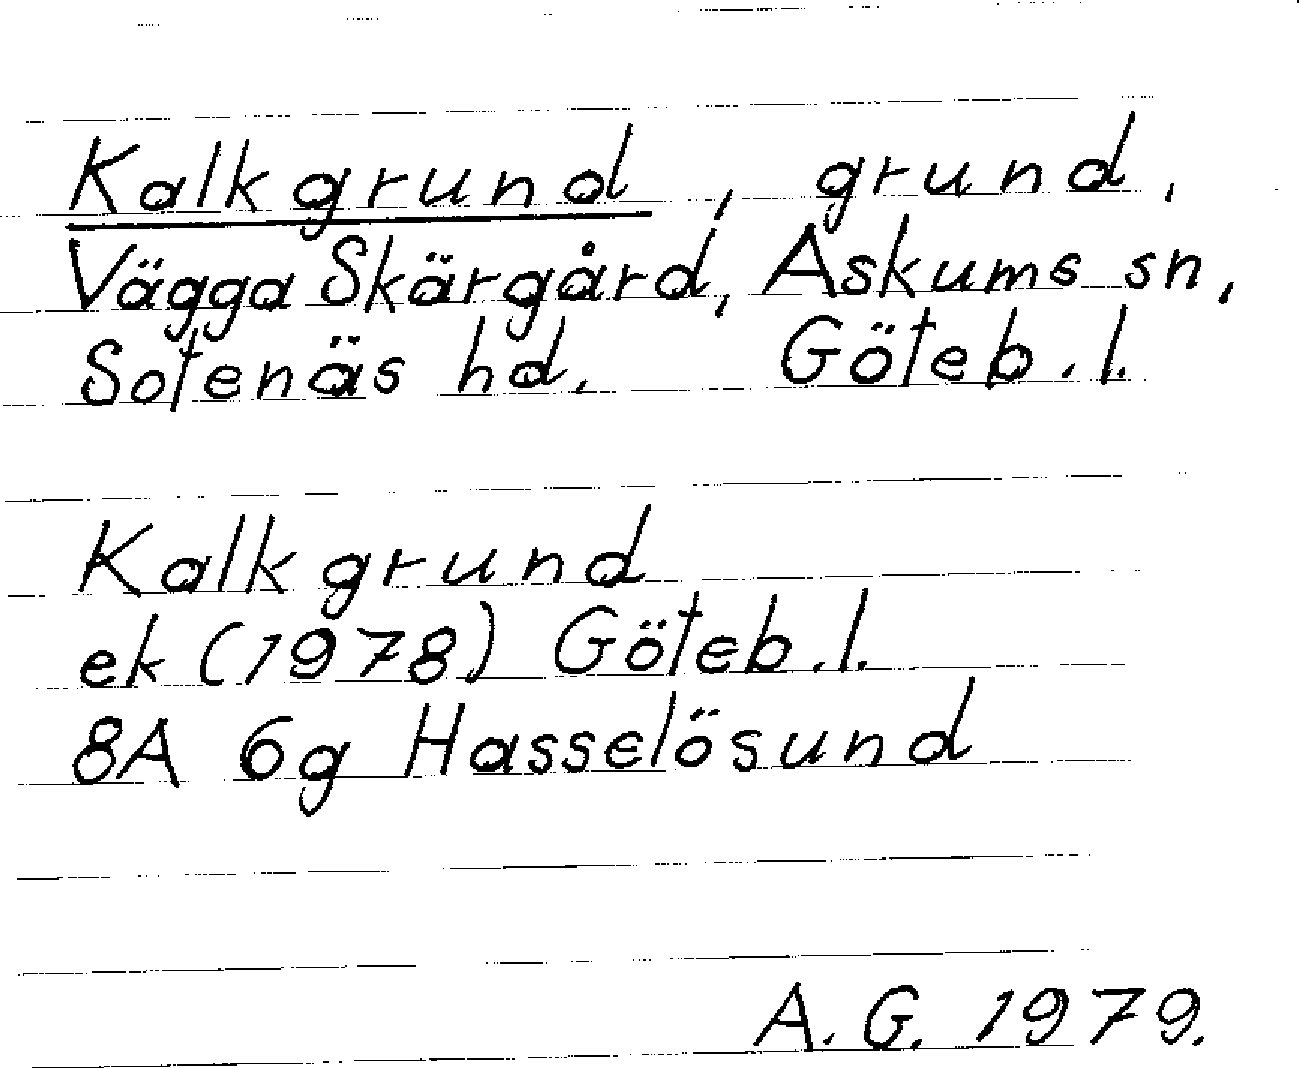 Kalkgrund, grund,
Vägga Skärgård, Askums sn,
Sotenäs hd. Göteb.l.
Kalkgrund
ek (1978) Göteb.l.
8A 6g Hasselösund
A.G. 1979.